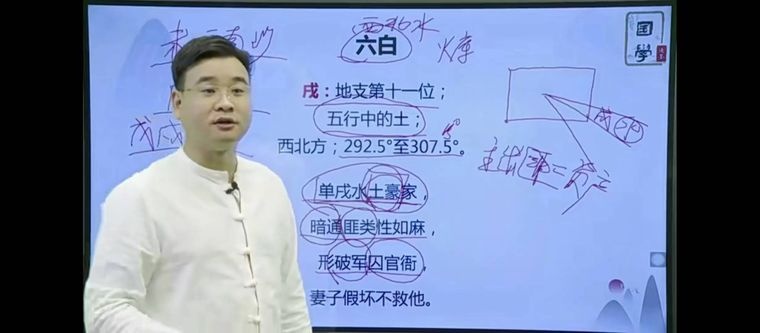 西北水
六白
火库
国學
戌：地支第十一位；
五行中的土；
西北方；292.5°至307.5°。
单戌水土豪家，
暗通匪类性如麻，
形破军囚官衙，
妻子假坏不救他。